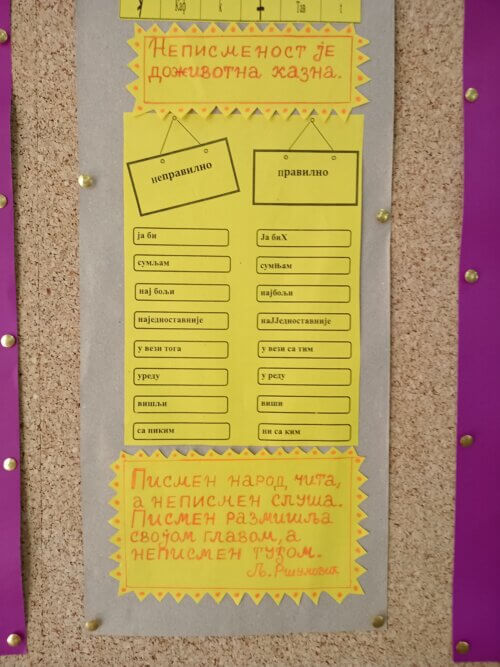 у Каф к Тав т
Неписменост је
доживотна казна.
неправилно правилно
ја би Ја биХ
сумљам сумЊам
нај бољи најбољи
наједноставније наЈЈедноставније
у вези тога у вези са тим
уреду у реду
вишљи виши
са никим ни са ким
Писмен народ чита,
а неписмен слуша.
Писмен размишља
својом главом, а
неписмен туђом.
Љ. Ршумовић